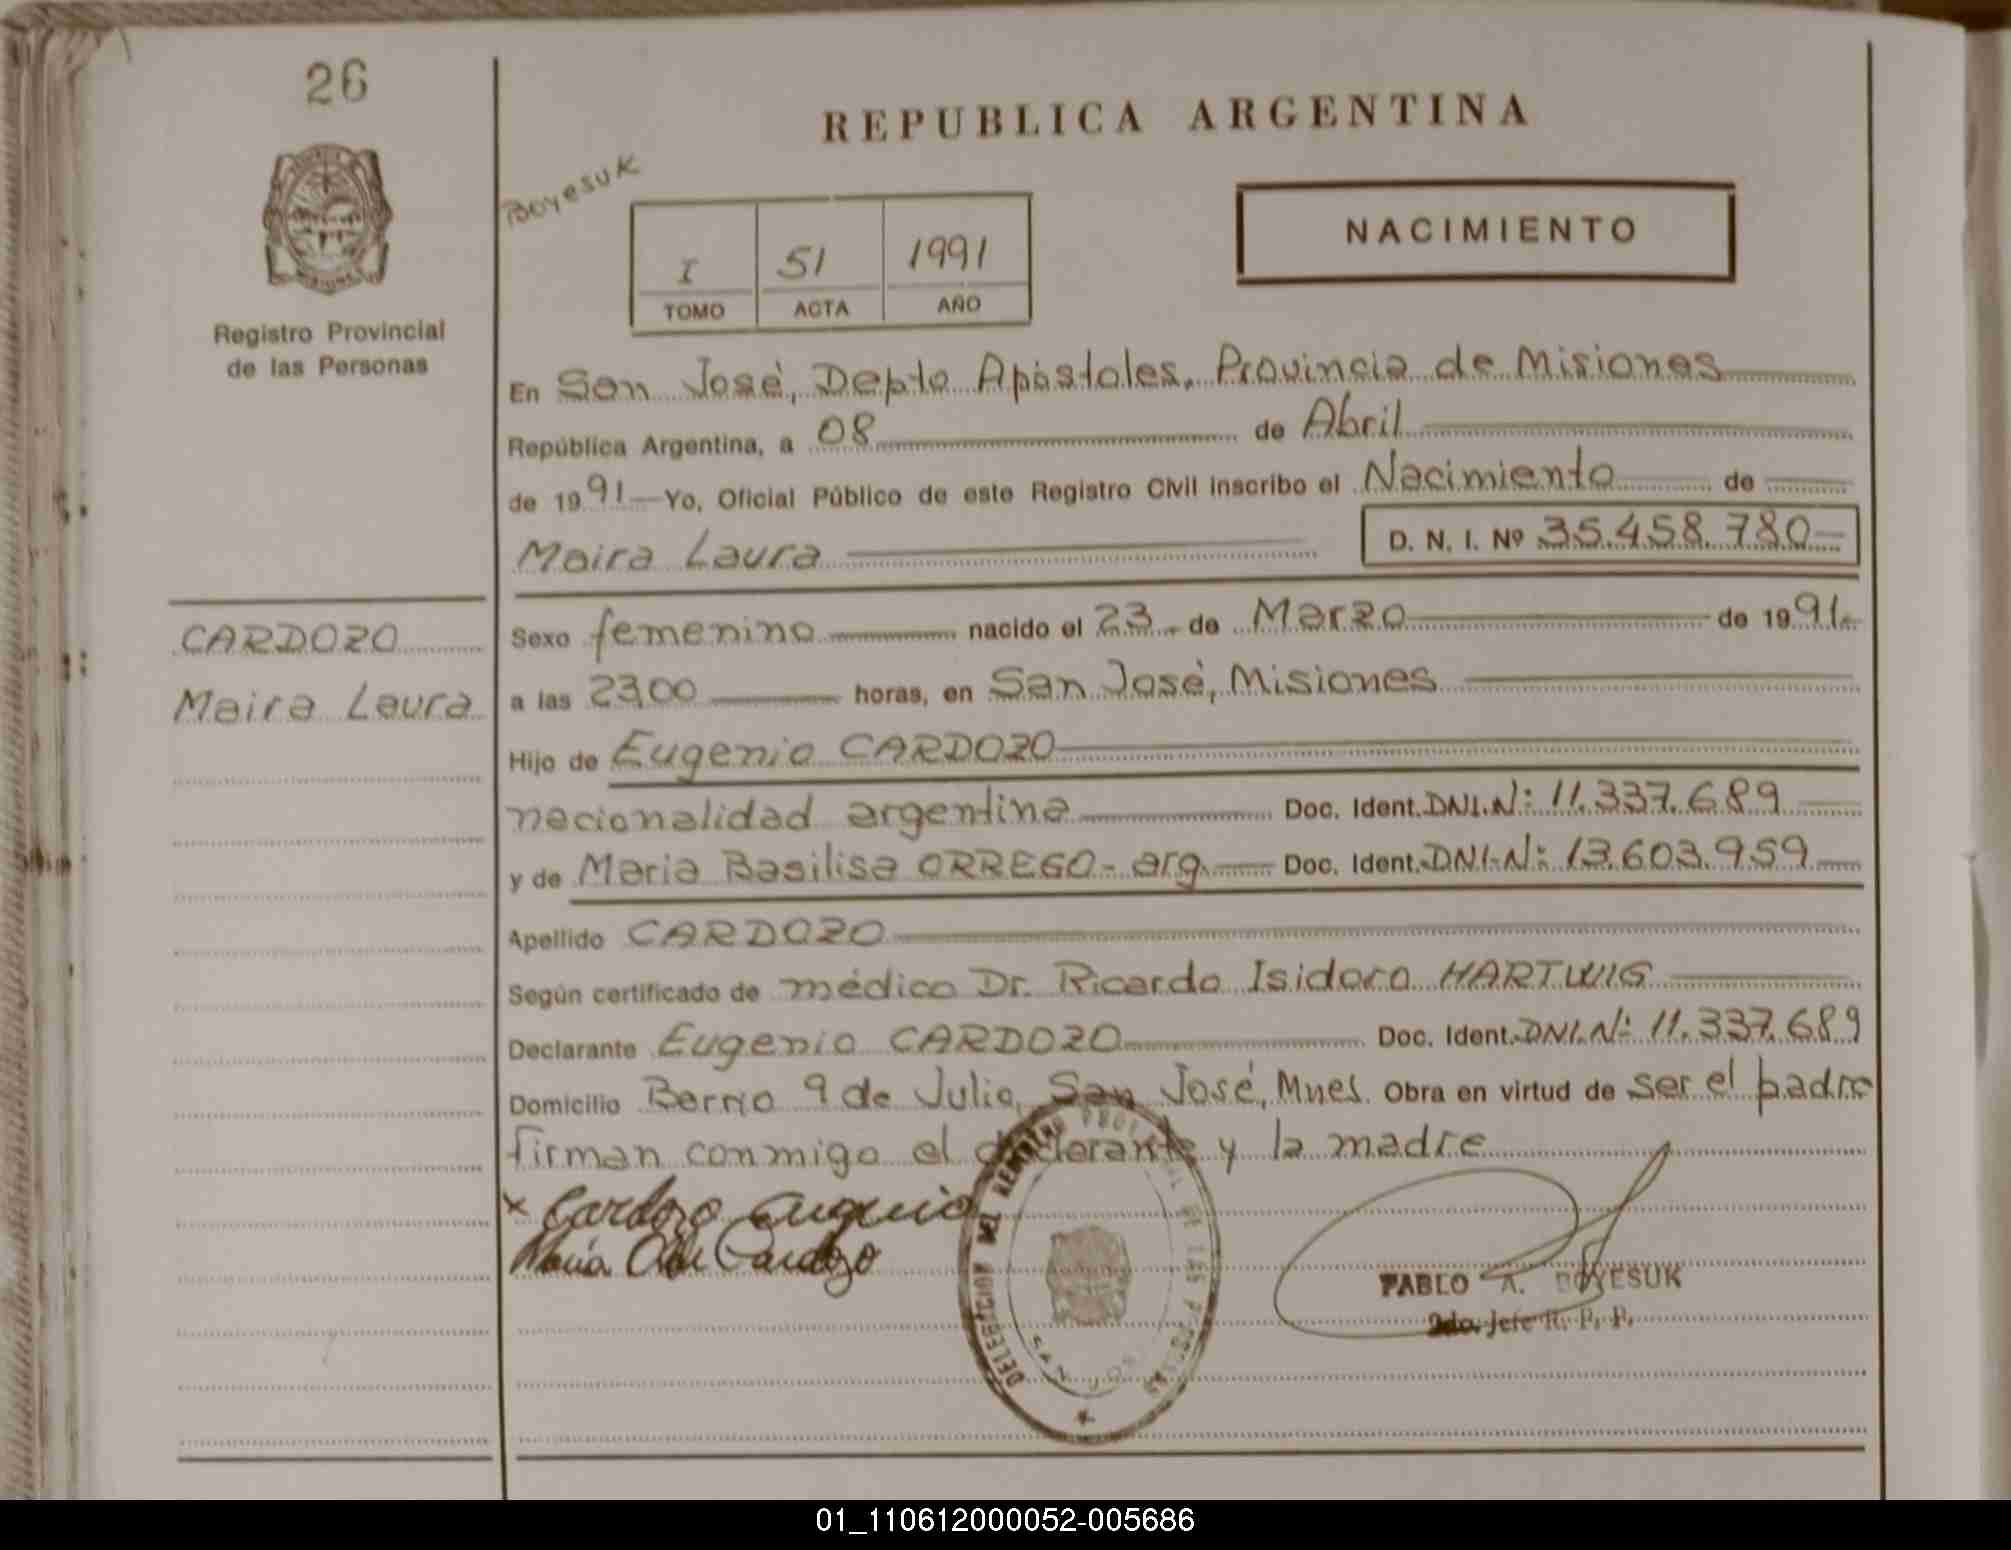 26
REPUBLICA ARGENTINA
Boyesuk
NACIMIENTO
I 51 1991
TOMO ACTA AÑO
Registro Provincial
de las Personas
En San José, Depto Apóstoles, Provincia de Misiones
República Argentina, a 08 de Abril
de 1991 Yo, Oficial Público de este Registro Civil inscribo el Nacimiento de
Maira Laura D. N. I. Nº 35.458.780
CARDOZO
Maira Laura
Sexo femenino nacido el 23 de Marzo de 1991
a las 23,00 horas, en San José, Misiones
Hijo de Eugenio CARDOZO
nacionalidad argentina Doc. Ident. DNI.Nº: 11.337.689
y de Maria Basilisa ORREGO - arg. Doc. Ident. DNI-Nº: 13.603.959
Apellido CARDOZO
Según certificado de médico Dr. Ricardo Isidoro HARTWIG
Declarante Eugenio CARDOZO Doc. Ident. DNI.Nº: 11.337.689
Domicilio Barrio 9 de Julio, San José, Mnes. Obra en virtud de ser el padre
firman conmigo el declarante y la madre
x Cardozo Eugenio
María Cardozo
DELEGACION DEL REGISTRO PROVINCIAL DE LAS PERSONAS
SAN JOSE
PABLO A. BOYESUK
2do. Jefe R. P. P.
01_110612000052-005686